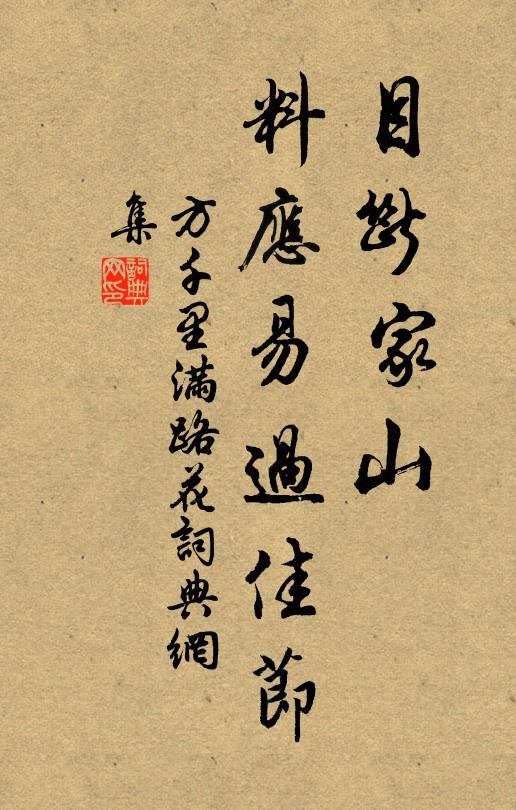 目斷家山
料應易過佳節
方千里滿路花詞典網
集
詞典网印